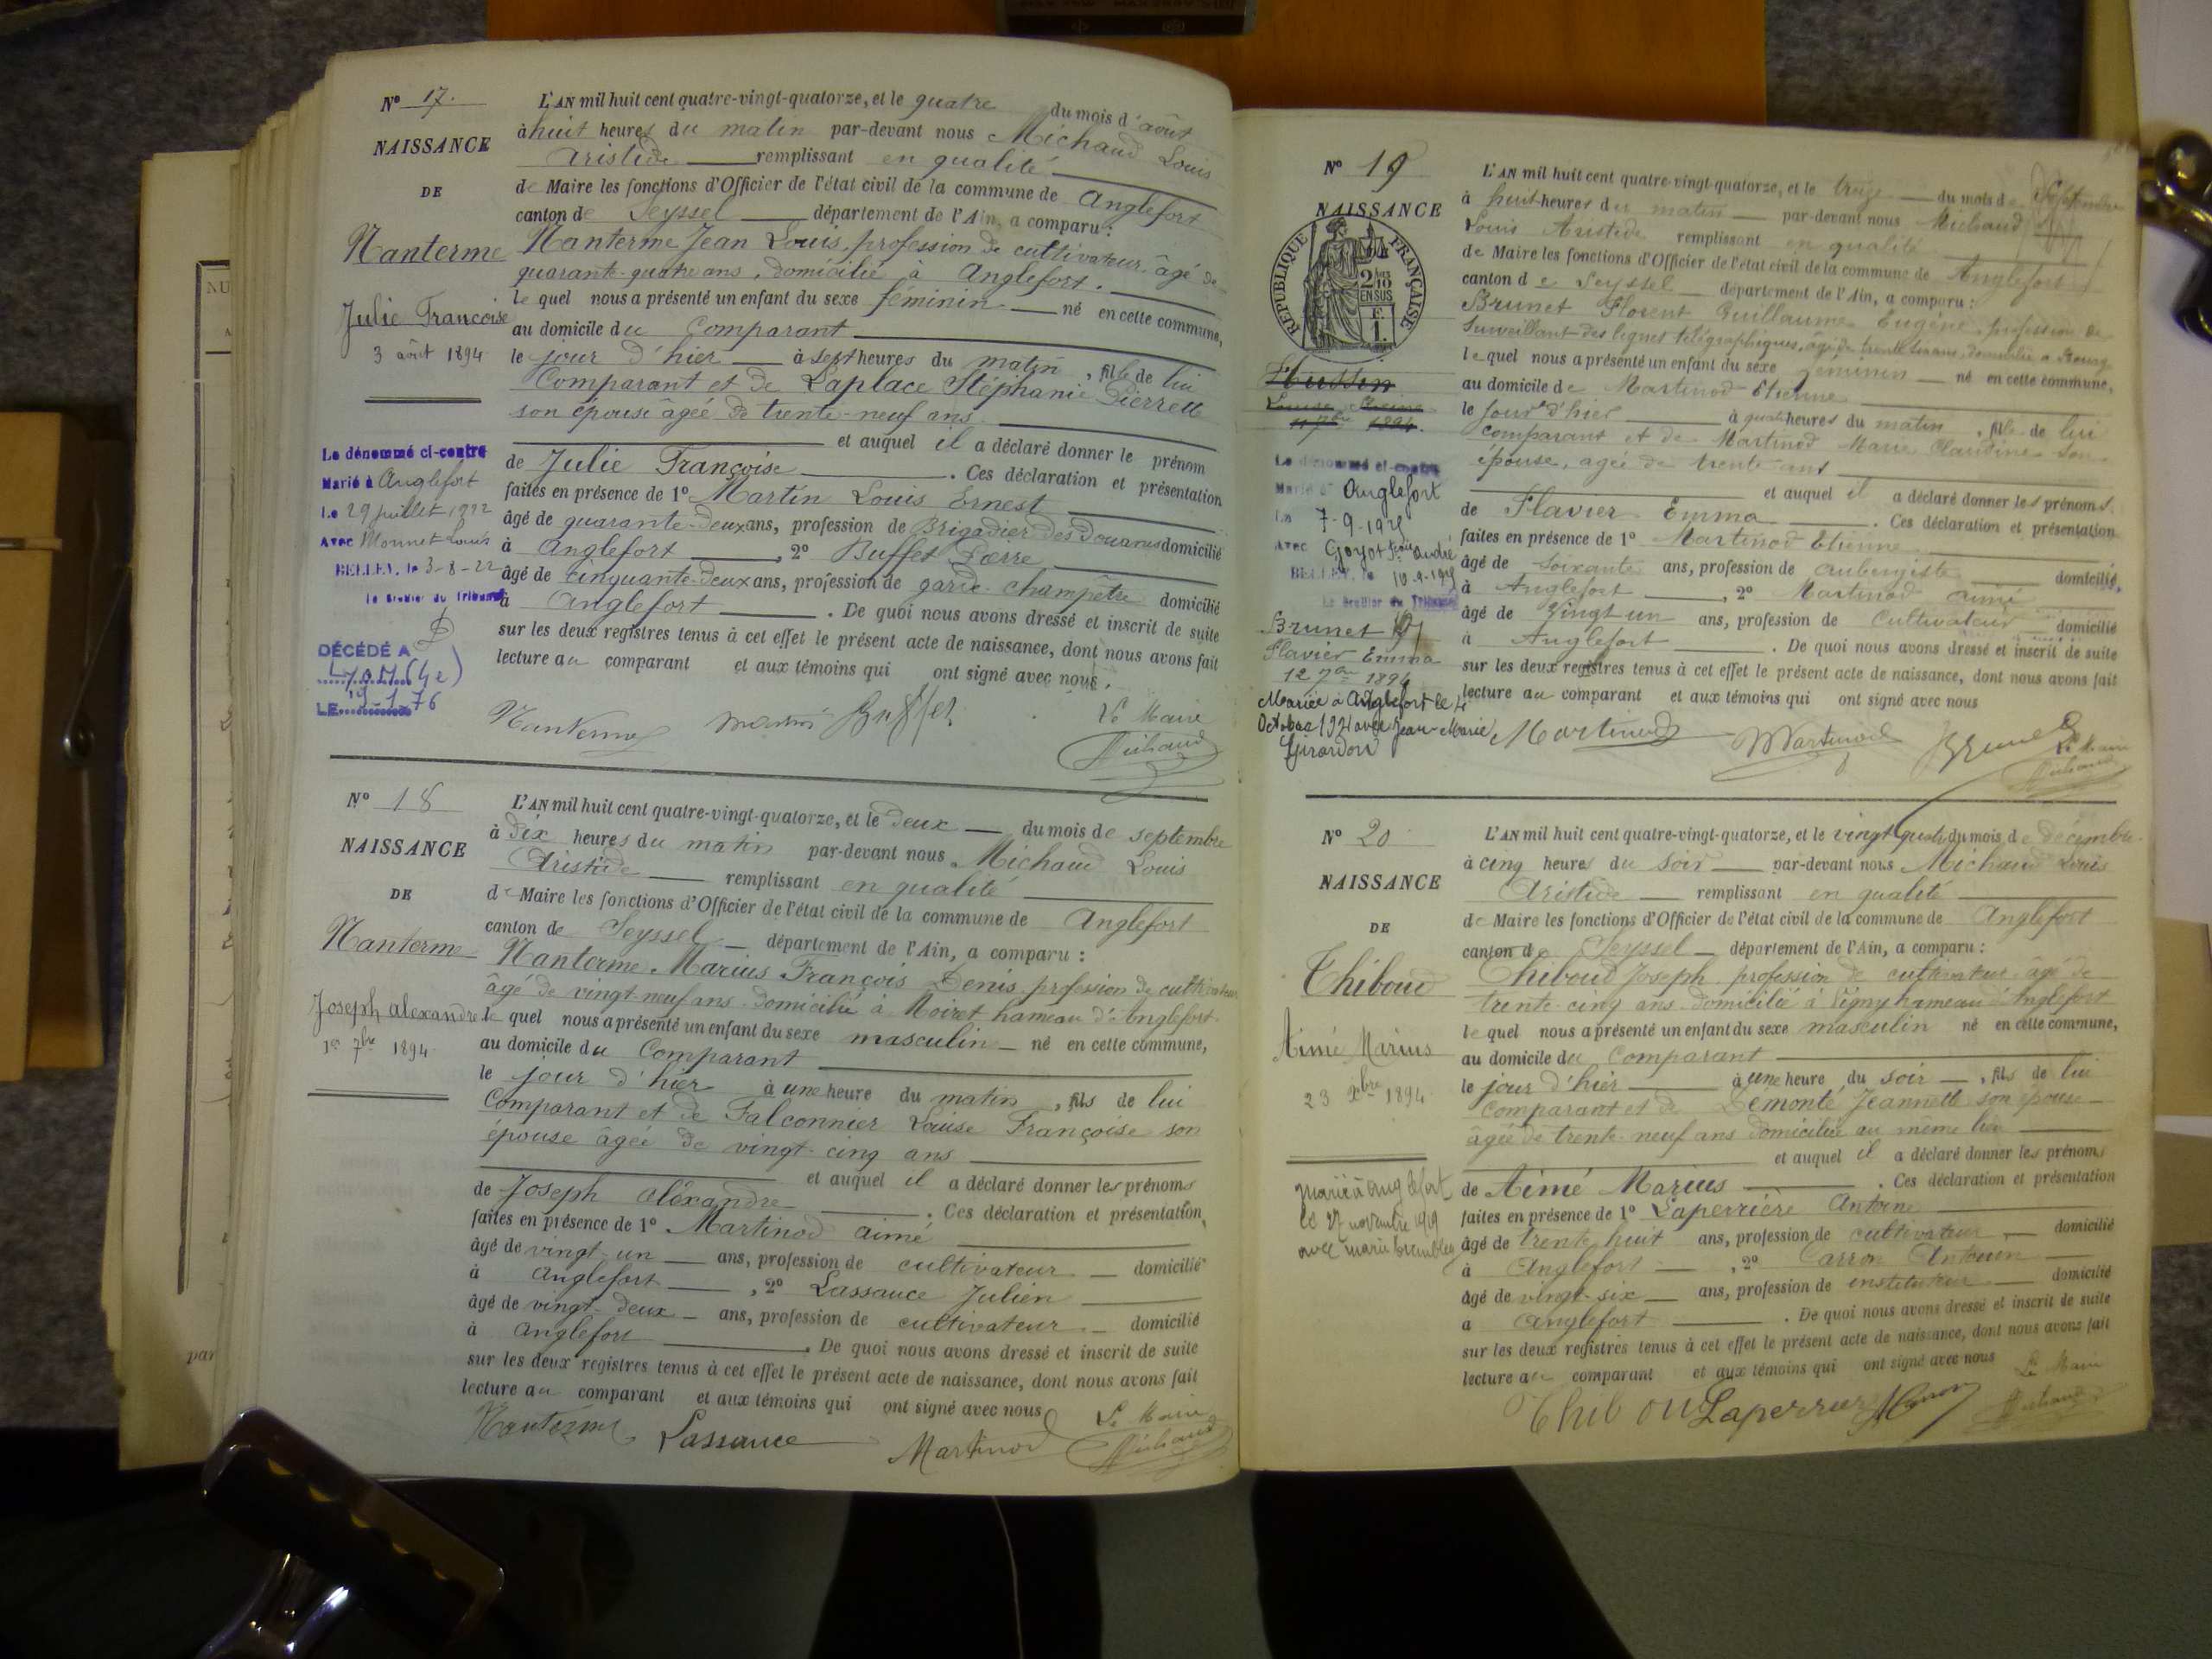 N° 17.
NAISSANCE
DE
Nanterme
Julie Françoise
3 août 1894
Le dénommé ci-contre
Marié à Anglefort
Le 29 juillet 1922
Avec Monnet Louis
BELLEY, le 3-8-22
Le Greffier du Tribunal
DÉCÉDÉ A
Lyon (4e)
LE 9-1-76
L'AN mil huit cent quatre-vingt-quatorze, et le quatre du mois d'août
à huit heures du matin par-devant nous Michaud Louis
Aristide remplissant en qualité
de Maire les fonctions d'Officier de l'état civil de la commune de Anglefort
canton de Seyssel département de l'Ain, a comparu :
Nanterme Jean Louis, profession de cultivateur, âgé de
quarante-quatre ans, domicilié à Anglefort.
le quel nous a présenté un enfant du sexe féminin né en cette commune,
au domicile du Comparant
le jour d'hier à sept heures du matin, fille de lui
Comparant et de Laplace Stéphanie Pierrette
son épouse âgée de trente-neuf ans
et auquel il a déclaré donner le prénom
de Julie Françoise. Ces déclaration et présentation
faites en présence de 1° Martin Louis Ernest
âgé de quarante-deux ans, profession de Brigadier des Douanes domicilié
à Anglefort, 2° Buffet Pierre
âgé de cinquante-deux ans, profession de garde-champêtre domicilié
à Anglefort. De quoi nous avons dressé et inscrit de suite
sur les deux registres tenus à cet effet le présent acte de naissance, dont nous avons fait
lecture au comparant et aux témoins qui ont signé avec nous.
Nanterme Martin Buffet Le Maire
Michaud
N° 18
NAISSANCE
DE
Nanterme
Joseph alexandre
1er 7bre 1894
L'AN mil huit cent quatre-vingt-quatorze, et le deux du mois de septembre
à dix heures du matin par-devant nous Michaud Louis
Aristide remplissant en qualité
de Maire les fonctions d'Officier de l'état civil de la commune de Anglefort
canton de Seyssel département de l'Ain, a comparu :
Nanterme Marius François Denis, profession de cultivateur
âgé de vingt-neuf ans domicilié à Moiret hameau d'Anglefort.
le quel nous a présenté un enfant du sexe masculin né en cette commune,
au domicile du Comparant
le jour d'hier à une heure du matin, fils de lui
Comparant et de Falconnier Louise Françoise son
épouse âgée de vingt-cinq ans
et auquel il a déclaré donner les prénoms
de Joseph aléxandre. Ces déclaration et présentation,
faites en présence de 1° Martinod aimé
âgé de vingt-un ans, profession de cultivateur domicilié
à Anglefort, 2° Lassauce Julien
âgé de vingt-deux ans, profession de cultivateur domicilié
à Anglefort. De quoi nous avons dressé et inscrit de suite
sur les deux registres tenus à cet effet le présent acte de naissance, dont nous avons fait
lecture au comparant et aux témoins qui ont signé avec nous
Nanterme Lassauce Martinod Le Maire
Michaud
N° 19
NAISSANCE
RÉPUBLIQUE FRANÇAISE
2/10 EN SUS
Le dénommé ci-contre
Marié à Anglefort
Le 7-9-1918
Avec Goyot André
BELLEY, le
Le Greffier du Tribunal
Brunet
Flavier Emma
12 7bre 1894
Mariée à Anglefort le 4
Octobre 1921 avec Jean-Marie
Girardon
L'AN mil huit cent quatre-vingt-quatorze, et le treize du mois de Septembre
à huit heures du matin par-devant nous Michaud
Louis Aristide remplissant en qualité
de Maire les fonctions d'Officier de l'état civil de la commune de Anglefort
canton de Seyssel département de l'Ain, a comparu :
Brunet Florent Guillaume Eugène, profession de
Surveillant des lignes télégraphiques, âgé de trente six ans, domicilié à Bourg
le quel nous a présenté un enfant du sexe féminin né en cette commune,
au domicile de Martinod Etienne
le jour d'hier à quatre heures du matin, fille de lui
comparant et de Martinod Marie Claudine son
épouse, agée de trente ans
et auquel il a déclaré donner les prénoms
de Flavier Emma. Ces déclaration et présentation
faites en présence de 1° Martinod Etienne
âgé de soixante ans, profession de aubergiste domicilié,
à Anglefort, 2° Martinod aimé
âgé de vingt un ans, profession de Cultivateur domicilié
à Anglefort. De quoi nous avons dressé et inscrit de suite
sur les deux registres tenus à cet effet le présent acte de naissance, dont nous avons fait
lecture au comparant et aux témoins qui ont signé avec nous
Martinod Martinod Brunet Le Maire
Michaud
N° 20
NAISSANCE
DE
Thiboud
Aimé Marius
23 xbre 1894
marié à Anglefort
le 27 novembre 1919
avec marie
L'AN mil huit cent quatre-vingt-quatorze, et le vingt quatre du mois de décembre
à cinq heures du soir par-devant nous Michaud Louis
Aristide remplissant en qualité
de Maire les fonctions d'Officier de l'état civil de la commune de Anglefort
canton de Seyssel département de l'Ain, a comparu :
Thiboud Joseph profession de cultivateur âgé de
trente-cinq ans domicilié à Pigny hameau d'Anglefort
le quel nous a présenté un enfant du sexe masculin né en cette commune,
au domicile du Comparant
le jour d'hier à une heure du soir, fils de lui
Comparant et de Démonté Jeannette son épouse
âgée de trente-neuf ans domiciliée au même lieu
et auquel il a déclaré donner les prénoms
de Aimé Marius. Ces déclaration et présentation
faites en présence de 1° Laperrière Antoine
âgé de trente huit ans, profession de cultivateur domicilié
à Anglefort, 2° Carron Antonin
âgé de vingt-six ans, profession de instituteur domicilié
à Anglefort. De quoi nous avons dressé et inscrit de suite
sur les deux registres tenus à cet effet le présent acte de naissance, dont nous avons fait
lecture au comparant et aux témoins qui ont signé avec nous
Thiboud Laperrière Le Maire
Michaud